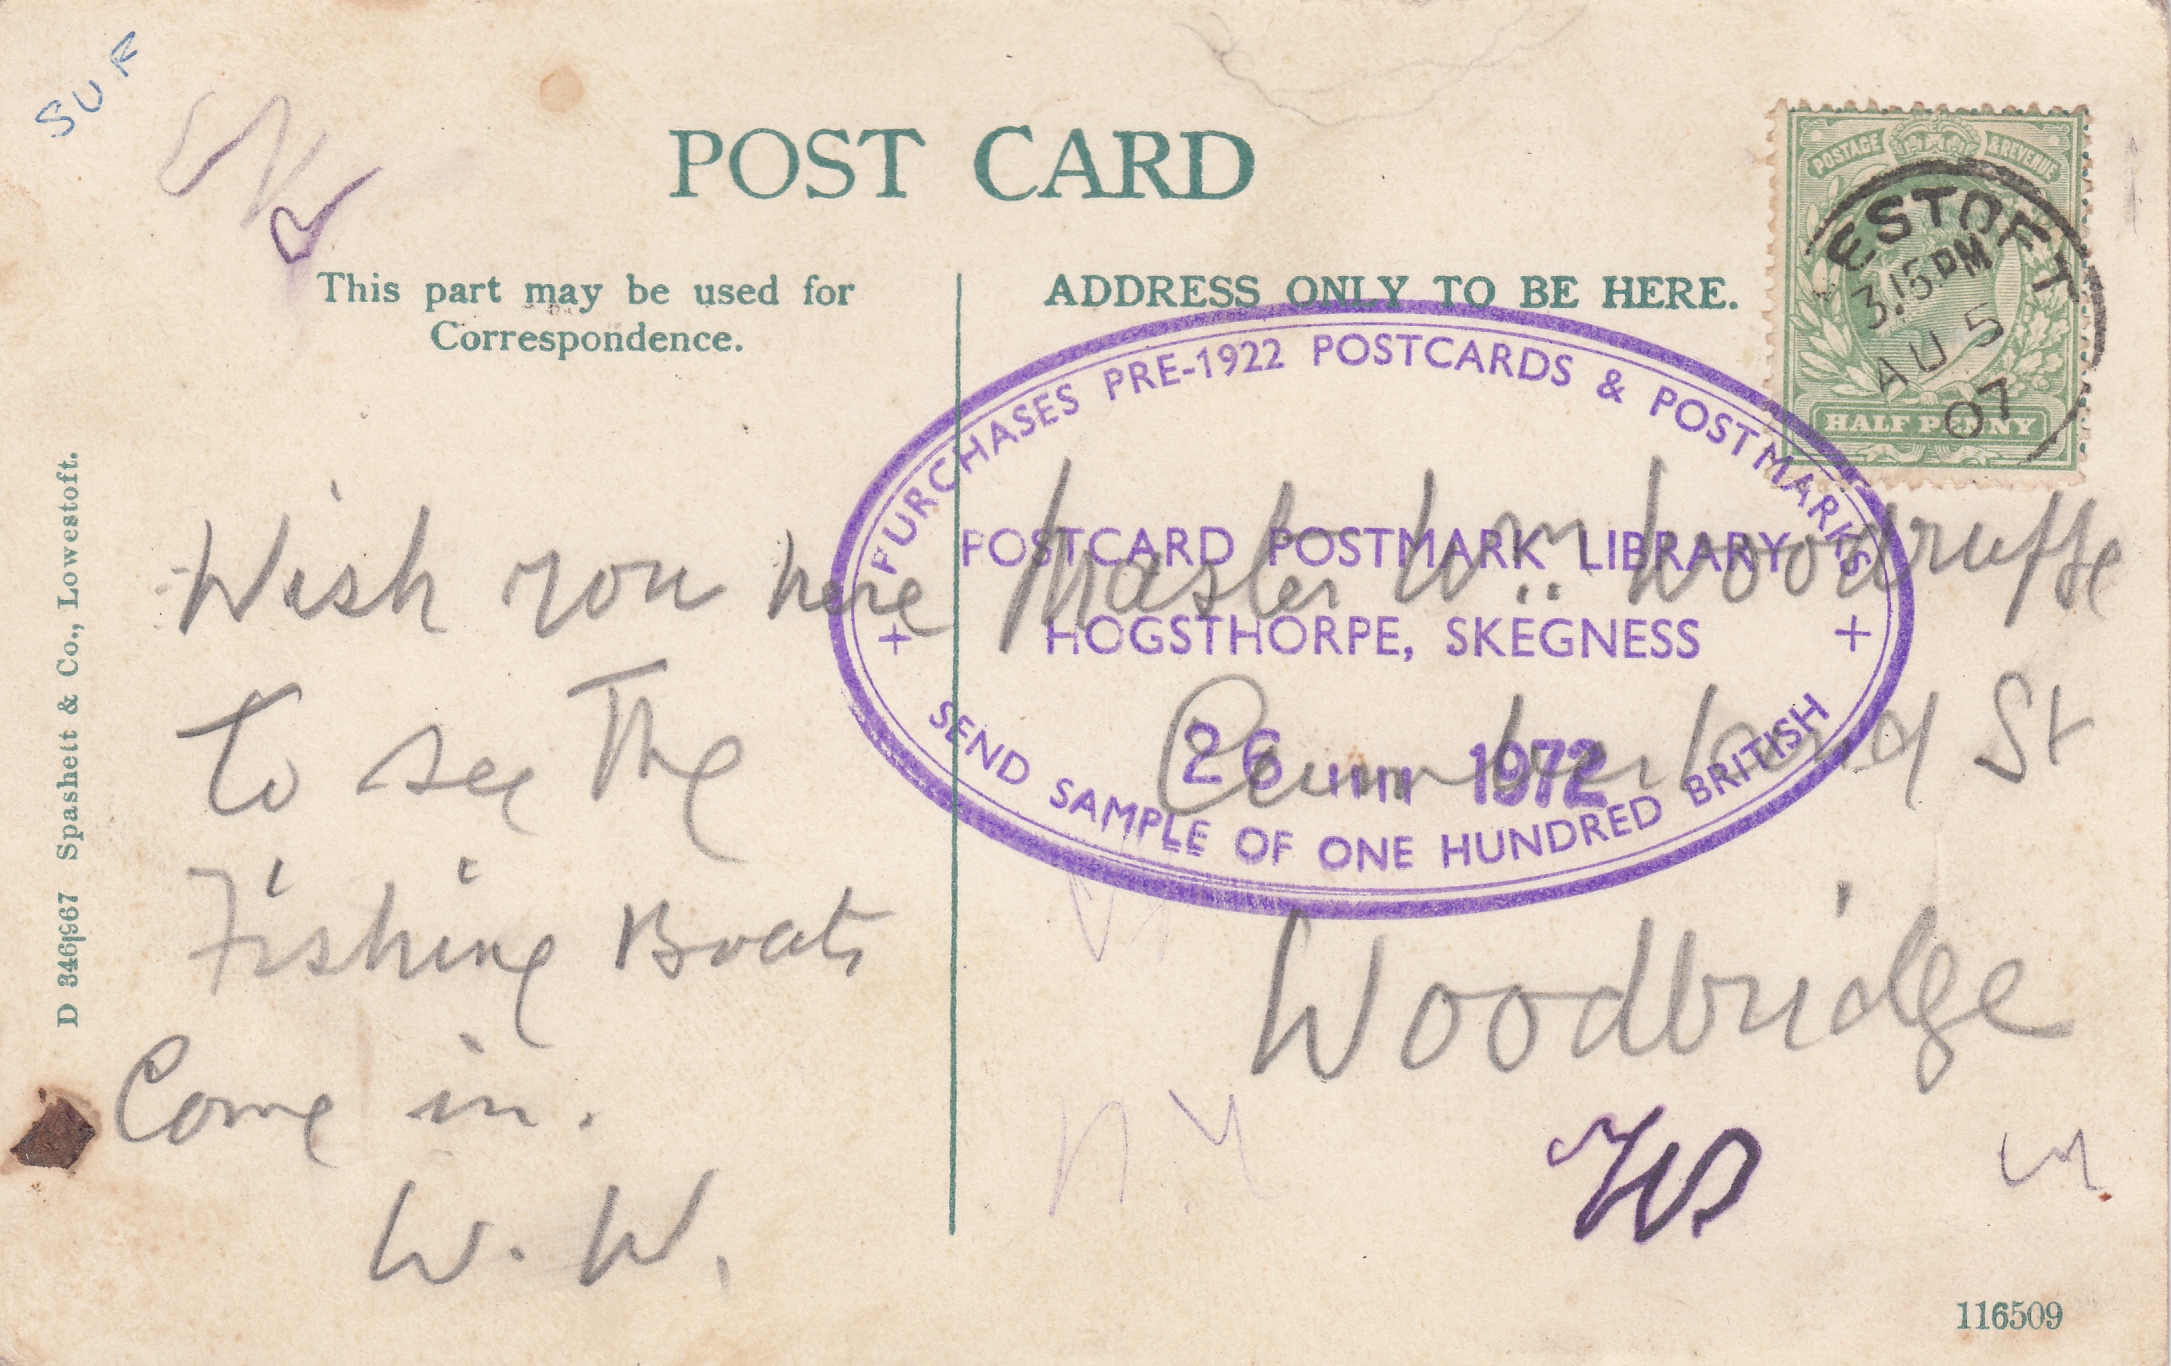 SUF
POST CARD
This part may be used for
Correspondence.
ADDRESS ONLY TO BE HERE.
POSTAGE & REVENUE
ESTOFT
3.15 PM
AU 5
07
HALF PENNY
PURCHASES PRE-1922 POSTCARDS & POSTMARKS
POSTCARD POSTMARK LIBRARY
+ HOGSTHORPE, SKEGNESS +
26 1972
SEND SAMPLE OF ONE HUNDRED BRITISH
Wish you here
To see The
Fishing Boats
Come in.
W. W.
Master Wm. Woodruffe
Cumberland St
Woodbridge
D 346967 Spashett & Co., Lowestoft.
116509